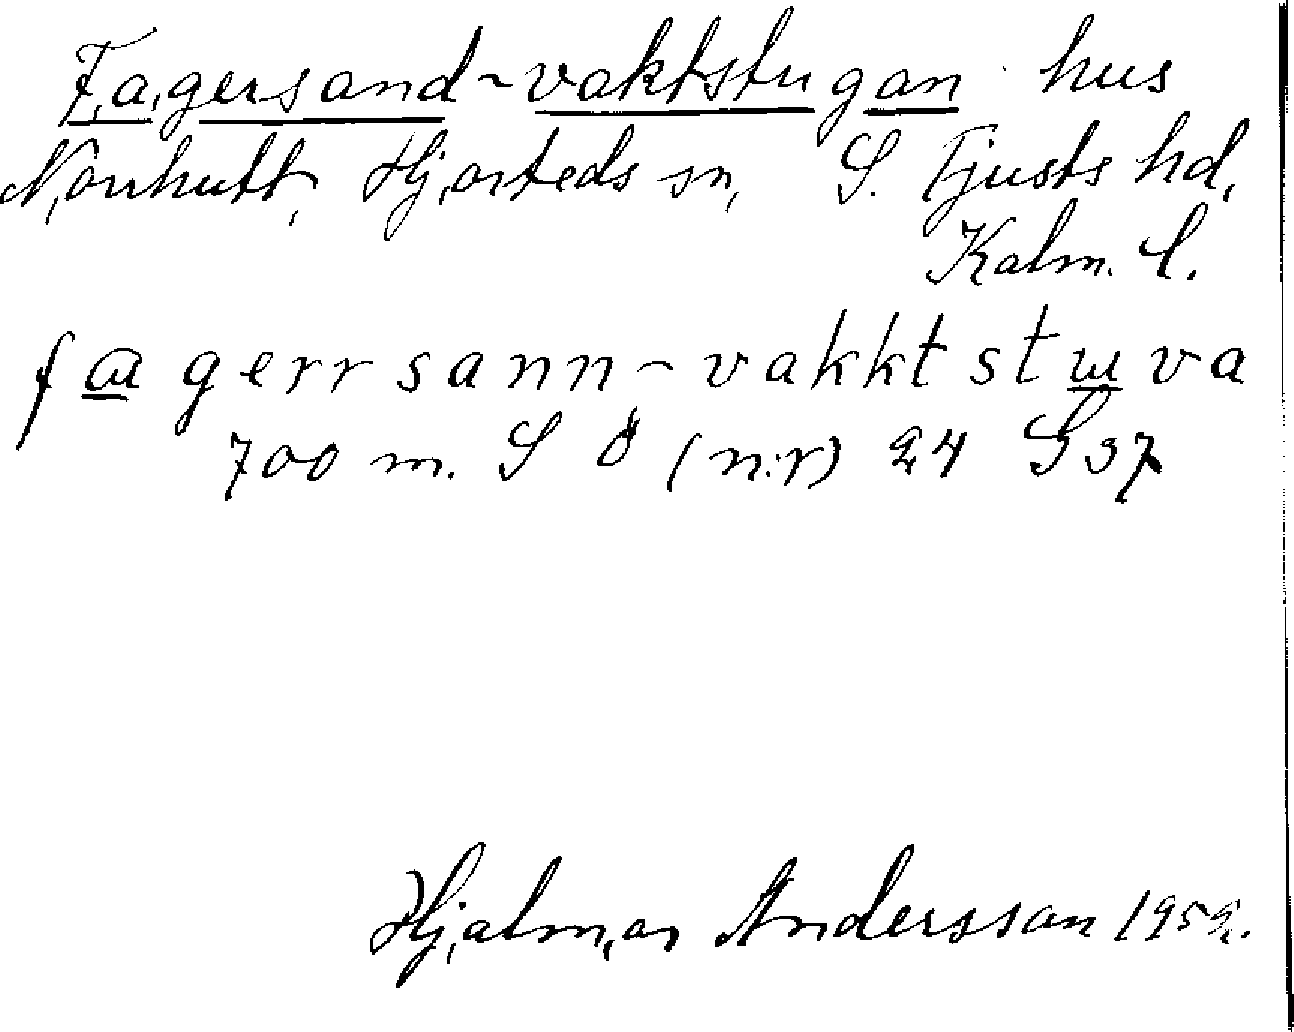 Fagersand-vaktstugan hus
Norrhult, Hjorteds sn, S. Tjusts hd,
Kalm. l.
fagerrsann-vakktstuva
700 m. S Ö (n:r) 24 G 37
Hjalmar Andersson 1959.